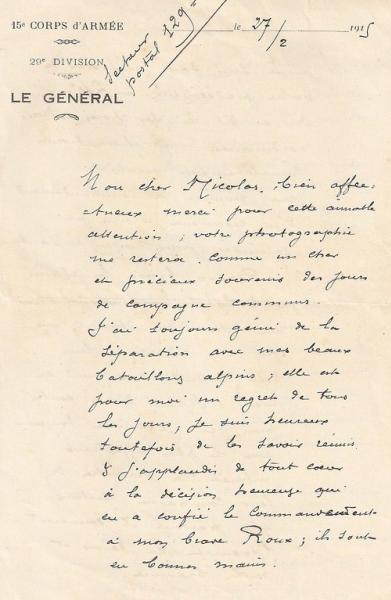 15e CORPS d'ARMÉE
29e DIVISION
LE GÉNÉRAL
Secteur
postal 129
le 27/2 1915
Mon cher Nicolas, bien affec-
tueux merci pour cette aimable
attention ; votre photographie
me restera comme un cher
et précieux souvenir des jours
de campagne communs.
J'ai toujours gémi de la
séparation avec mes beaux
bataillons alpins ; elle est
pour moi un regret de tous
les jours ; je suis heureux
toutefois de les savoir réunis
& j'applaudis de tout cœur
à la décision heureuse qui
en a confié le commandement
à mon brave Roux ; ils sont
en bonnes mains.